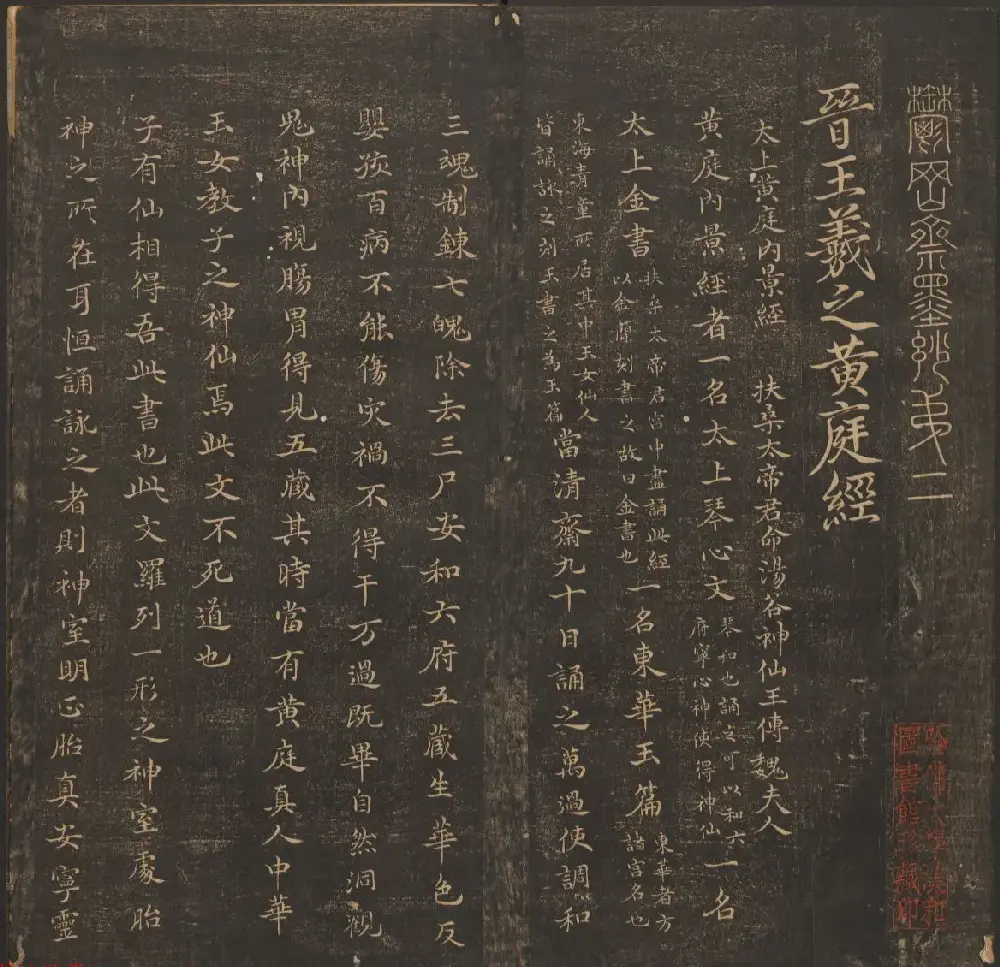 鬱岡齋墨妙弟二
晉王羲之黃庭經
太上黃庭內景經　扶桑太帝君命湯谷神仙王傳魏夫人
黃庭內景經者一名太上琴心文琴和也誦之可以和六府寧心神使得神仙一名
太上金書扶桑太帝君宮中盡誦此經以金簡刻書之故曰金書也一名東華玉篇東華者方諸宮名也
東海青童所居其中玉女仙人皆誦詠之刻玉書之為玉篇當清齋九十日誦之萬過使調和
三魂制鍊七魄除去三尸安和六府五藏生華色反
嬰孩百病不能傷灾禍不得干万過既畢自然洞觀
鬼神內視腸胃得見五藏其時當有黃庭真人中華
玉女教子之神仙焉此文不死道也
子有仙相得吾此書也此文羅列一形之神室處胎
神之所在耳恒誦詠之者則神室明正胎真安寧靈
哈佛大學漢和
圖書館珍藏印